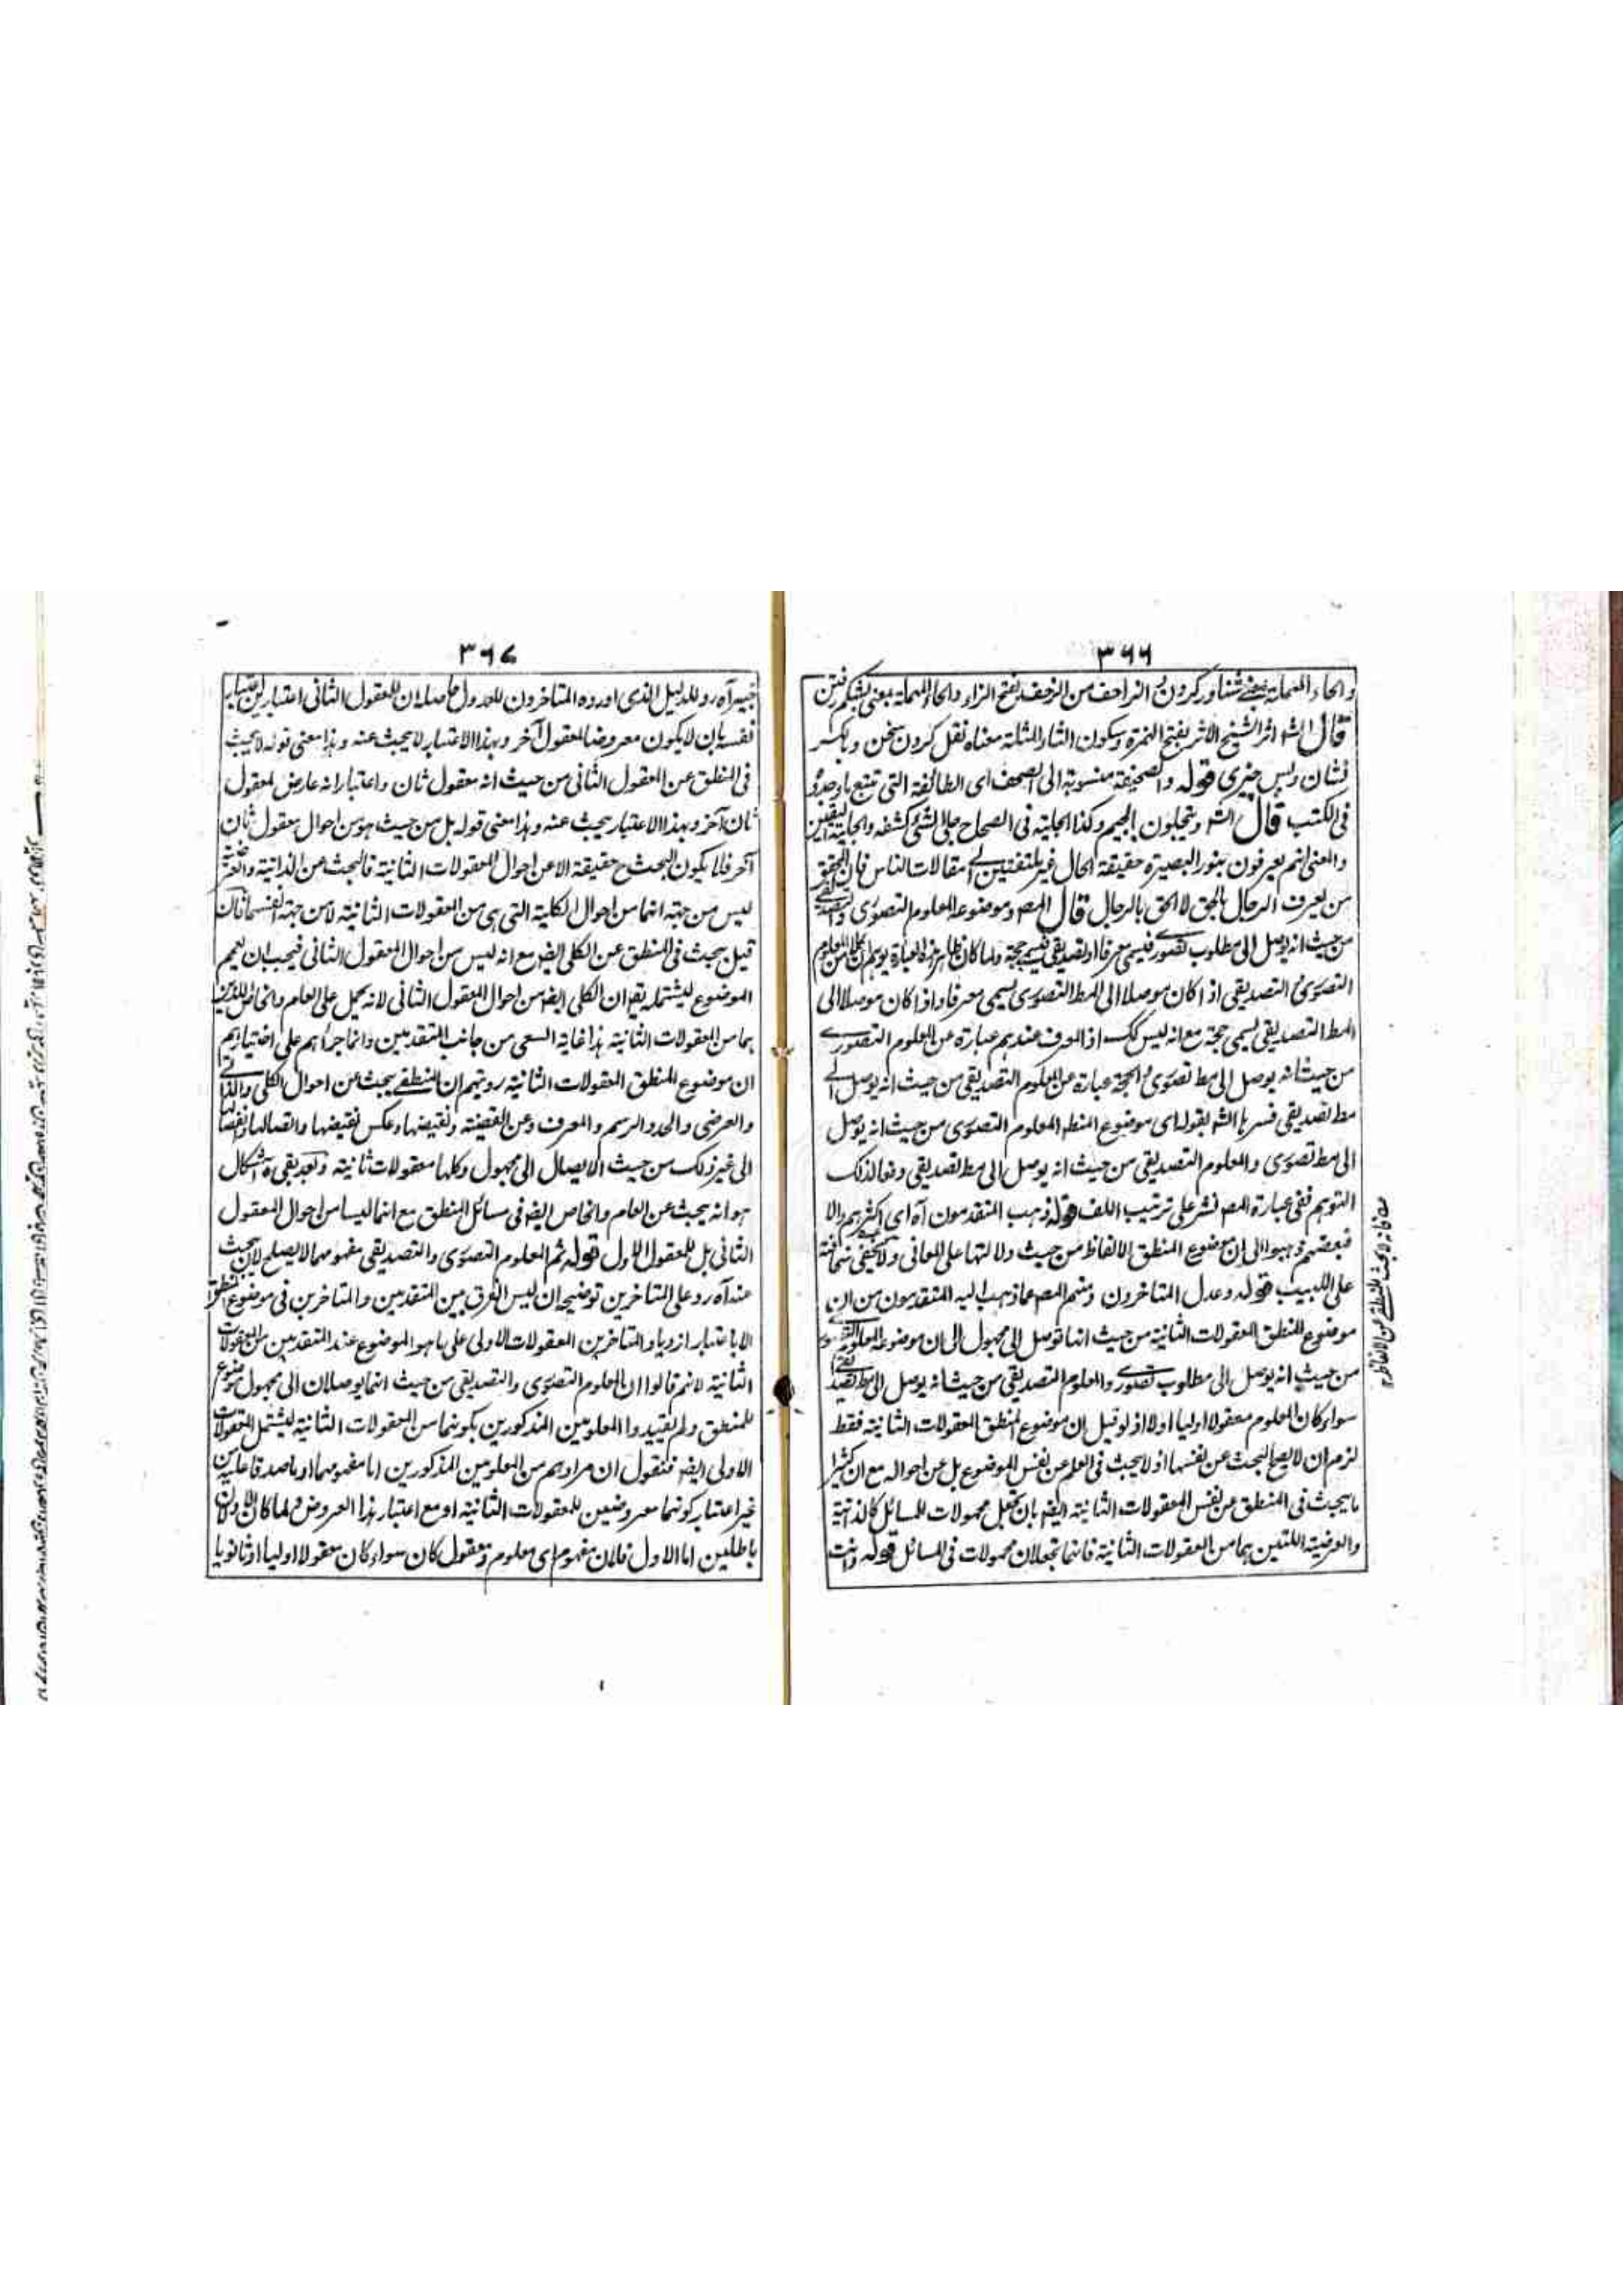 ٣٦٦
والحاء المهملة بمعنى شناور كردن الزاحف من الزحف بفتح الزاء والحاء المهملة بمعنى بشكم رفتن
قال الشه اثر الشيخ الاثر بفتح الهمزة وسكون الثاء المثلثة معناه نقل كردن سخن وبكسر
نشان وپس چيزى قوله والصحيفة منسوبة الى الصحف اى الطائفة التى تتبع ما وجدوه
فى الكتب قال الشه ويتجلون بالجيم وكذا الجالية فى الصحاح جلى الشئ كشفه
والمعنى انهم يعرفون بنور البصيرة حقيقة الحال غير ملتفتين الى مقالات الناس فان المحقق
من يعرف الرجال بالحق لا الحق بالرجال قال المص وموضوعه المعلوم التصورى والتصديقى
من حيث انه يوصل الى مطلوب تصورى فيسمى معرفا او تصديقى فيسمى حجة ولما كان ظاهر هذه العبارة يوهم ان كلا من المعلوم
التصورى والتصديقى اذا كان موصلا الى المط التصورى يسمى معرفا واذا كان موصلا الى
المط التصديقى يسمى حجة مع انه ليس كك اذ المعرف عندهم عبارة عن المعلوم التصورى
من حيث انه يوصل الى مط تصورى والحجة عبارة عن المعلوم التصديقى من حيث انه يوصل الى
مط تصديقى فسرها الشه بقوله اى موضوع المنطق المعلوم التصورى من حيث انه يوصل
الى مط تصورى والمعلوم التصديقى من حيث انه يوصل الى مط تصديقى دفعا لذلك
التوهم ففى عبارة المص نشر على ترتيب اللف قوله ذهب المتقدمون آه اى اكثرهم والا
فبعضهم ذهبوا الى ان موضوع المنطق الالفاظ من حيث دلالتها على المعانى ولا يخفى سخافته
على اللبيب قوله وعدل المتاخرون ومنهم المص عما ذهب اليه المتقدمون من ان
موضوع المنطق المعقولات الثانية من حيث انها توصل الى مجهول الى ان موضوعه المعلوم التصورى
من حيث انه يوصل الى مطلوب تصورى والمعلوم التصديقى من حيث انه يوصل الى مط تصديقى
سواء كان المعلوم معقولا اوليا اولا اذ لو قيل ان موضوع المنطق المعقولات الثانية فقط
لزم ان لا يصح البحث عن نفسها اذ لا يبحث فى العلم عن نفس الموضوع بل عن احواله مع ان كثيرا
ما يبحث فى المنطق عن نفس المعقولات الثانية ايضه بان يجعل محمولات للمسائل كالذاتية
والعرضية اللتين هما من المعقولات الثانية فانهما تجعلان محمولات فى المسائل قوله وانت
٣٦٧
خبير آه رد للدليل الذى اورده المتاخرون للعدول حاصله ان للمعقول الثانى اعتبارين اعتبار
نفسه بان لا يكون معروضا لمعقول آخر وبهذا الاعتبار لا يبحث عنه وهذا معنى قوله لا يبحث
فى المنطق عن المعقول الثانى من حيث انه معقول ثان واعتبار انه عارض لمعقول
ثان آخر وبهذا الاعتبار يبحث عنه وهذا معنى قوله بل من حيث هو من احوال معقول ثان
آخر فلا يكون البحث ح حقيقة الا عن احوال المعقولات الثانية فالبحث عن الذاتية والعرضية
ليس من جهة انها من احوال الكلية التى هى من المعقولات الثانية لا من جهة انفسها فان
قيل يبحث فى المنطق عن الكلى ايضه مع انه ليس من احوال المعقول الثانى فيجب ان يعمم
الموضوع ليشتمله يقه ان الكلى ايضه من احوال المعقول الثانى لانه يحمل على العام والخاص اللذين
هما من المعقولات الثانية هذا غاية السعى من جانب المتقدمين وانما جرأهم على اختيارهم
ان موضوع المنطق المعقولات الثانية رويتهم ان المنطقى يبحث عن احوال الكلى والذاتى
والعرضى والحد والرسم والمعرف وعن القضية ونقيضها وعكس نقيضها واتصالها وانفصالها
الى غير ذلك من حيث الايصال الى مجهول وكلها معقولات ثانية وبعد بقى ه اشكال
هو انه يبحث عن العام والخاص ايضه فى مسائل المنطق مع انهما ليسا من احوال المعقول
الثانى بل للمعقول الاول قوله ثم المعلوم التصورى والتصديقى مفهومهما لا يصلح لان يبحث
عنه آه رد على المتاخرين توضيحه ان ليس الفرق بين المتقدمين والمتاخرين فى موضوع المنطق
الا باعتبار ازدياد المتاخرين المعقولات الاولى على ما هو الموضوع عند المتقدمين من المعقولات
الثانية لانهم قالوا ان المعلوم التصورى والتصديقى من حيث انهما يوصلان الى مجهول موضوع
للمنطق ولم يقيدوا المعلومين المذكورين بكونهما من المعقولات الثانية ليشتمل المعقولات
الاولى ايضه فنقول ان مرادهم من المعلومين المذكورين اما مفهومهما او ما صدقا عليه من
غير اعتبار كونهما معروضين للمعقولات الثانية او مع اعتبار هذا العروض فلما كان الاولان
باطلين اما الاول فلان مفهوم اى معلوم ومعقول كان سواء كان معقولا اوليا او ثانويا